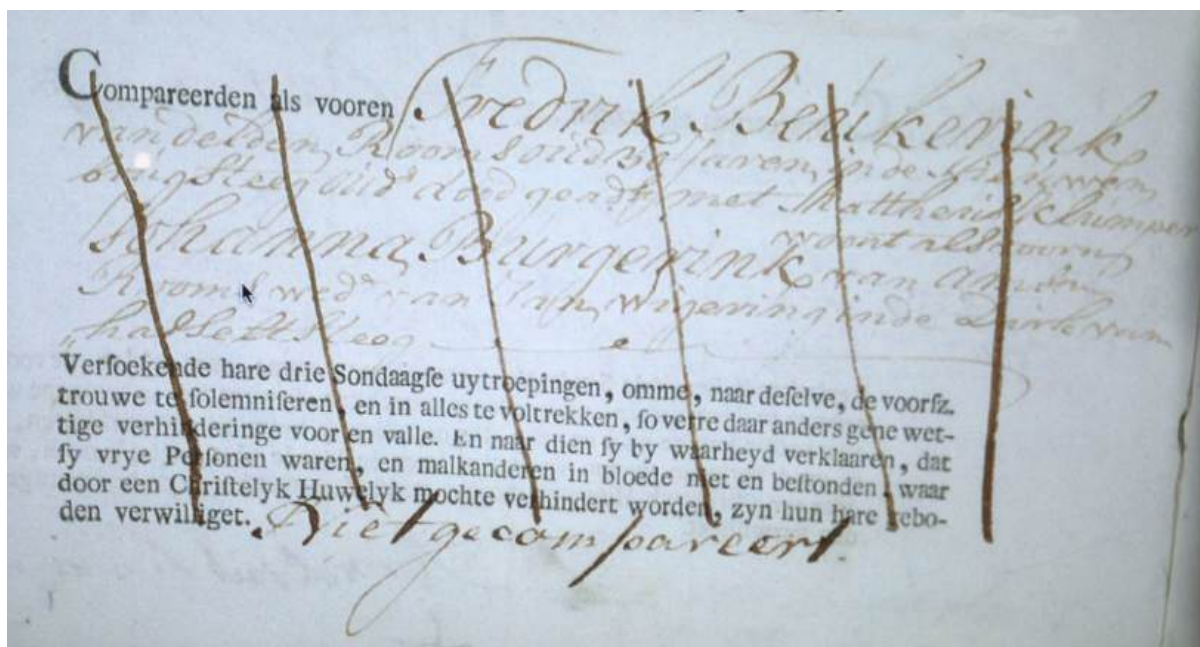 Compareerden als vooren Fredrik Benkerink
van delden, Rooms oud 39 Jaaren, in de
oud dood geadst met Mattheus Schimper
woont als vooren
Johanna Burgerink van
Rooms wedᵉ van Jan Wigerinq in de Dirk van
hasselt Steeg
Verſoekende hare drie Sondaagſe uytroepingen, omme, naar deſelve, de voorſz.
trouwe te ſolemniſeren, en in alles te voltrekken, ſo verre daar anders gene wet-
tige verhinderinge voor en valle. En naar dien ſy by waarheyd verklaaren, dat
ſy vrye Perſonen waren, en malkanderen in bloede niet en beſtonden, waar
door een Chriſtelyk Huwelyk mochte verhindert worden, zyn hun hare gebo-
den verwilliget. Niet gecompareert.